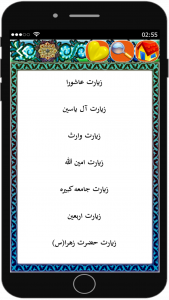 02:55
زیارت عاشورا
زیارت آل یاسین
زیارت وارث
زیارت امین الله
زیارت جامعه کبیره
زیارت اربعین
زیارت حضرت زهرا(س)